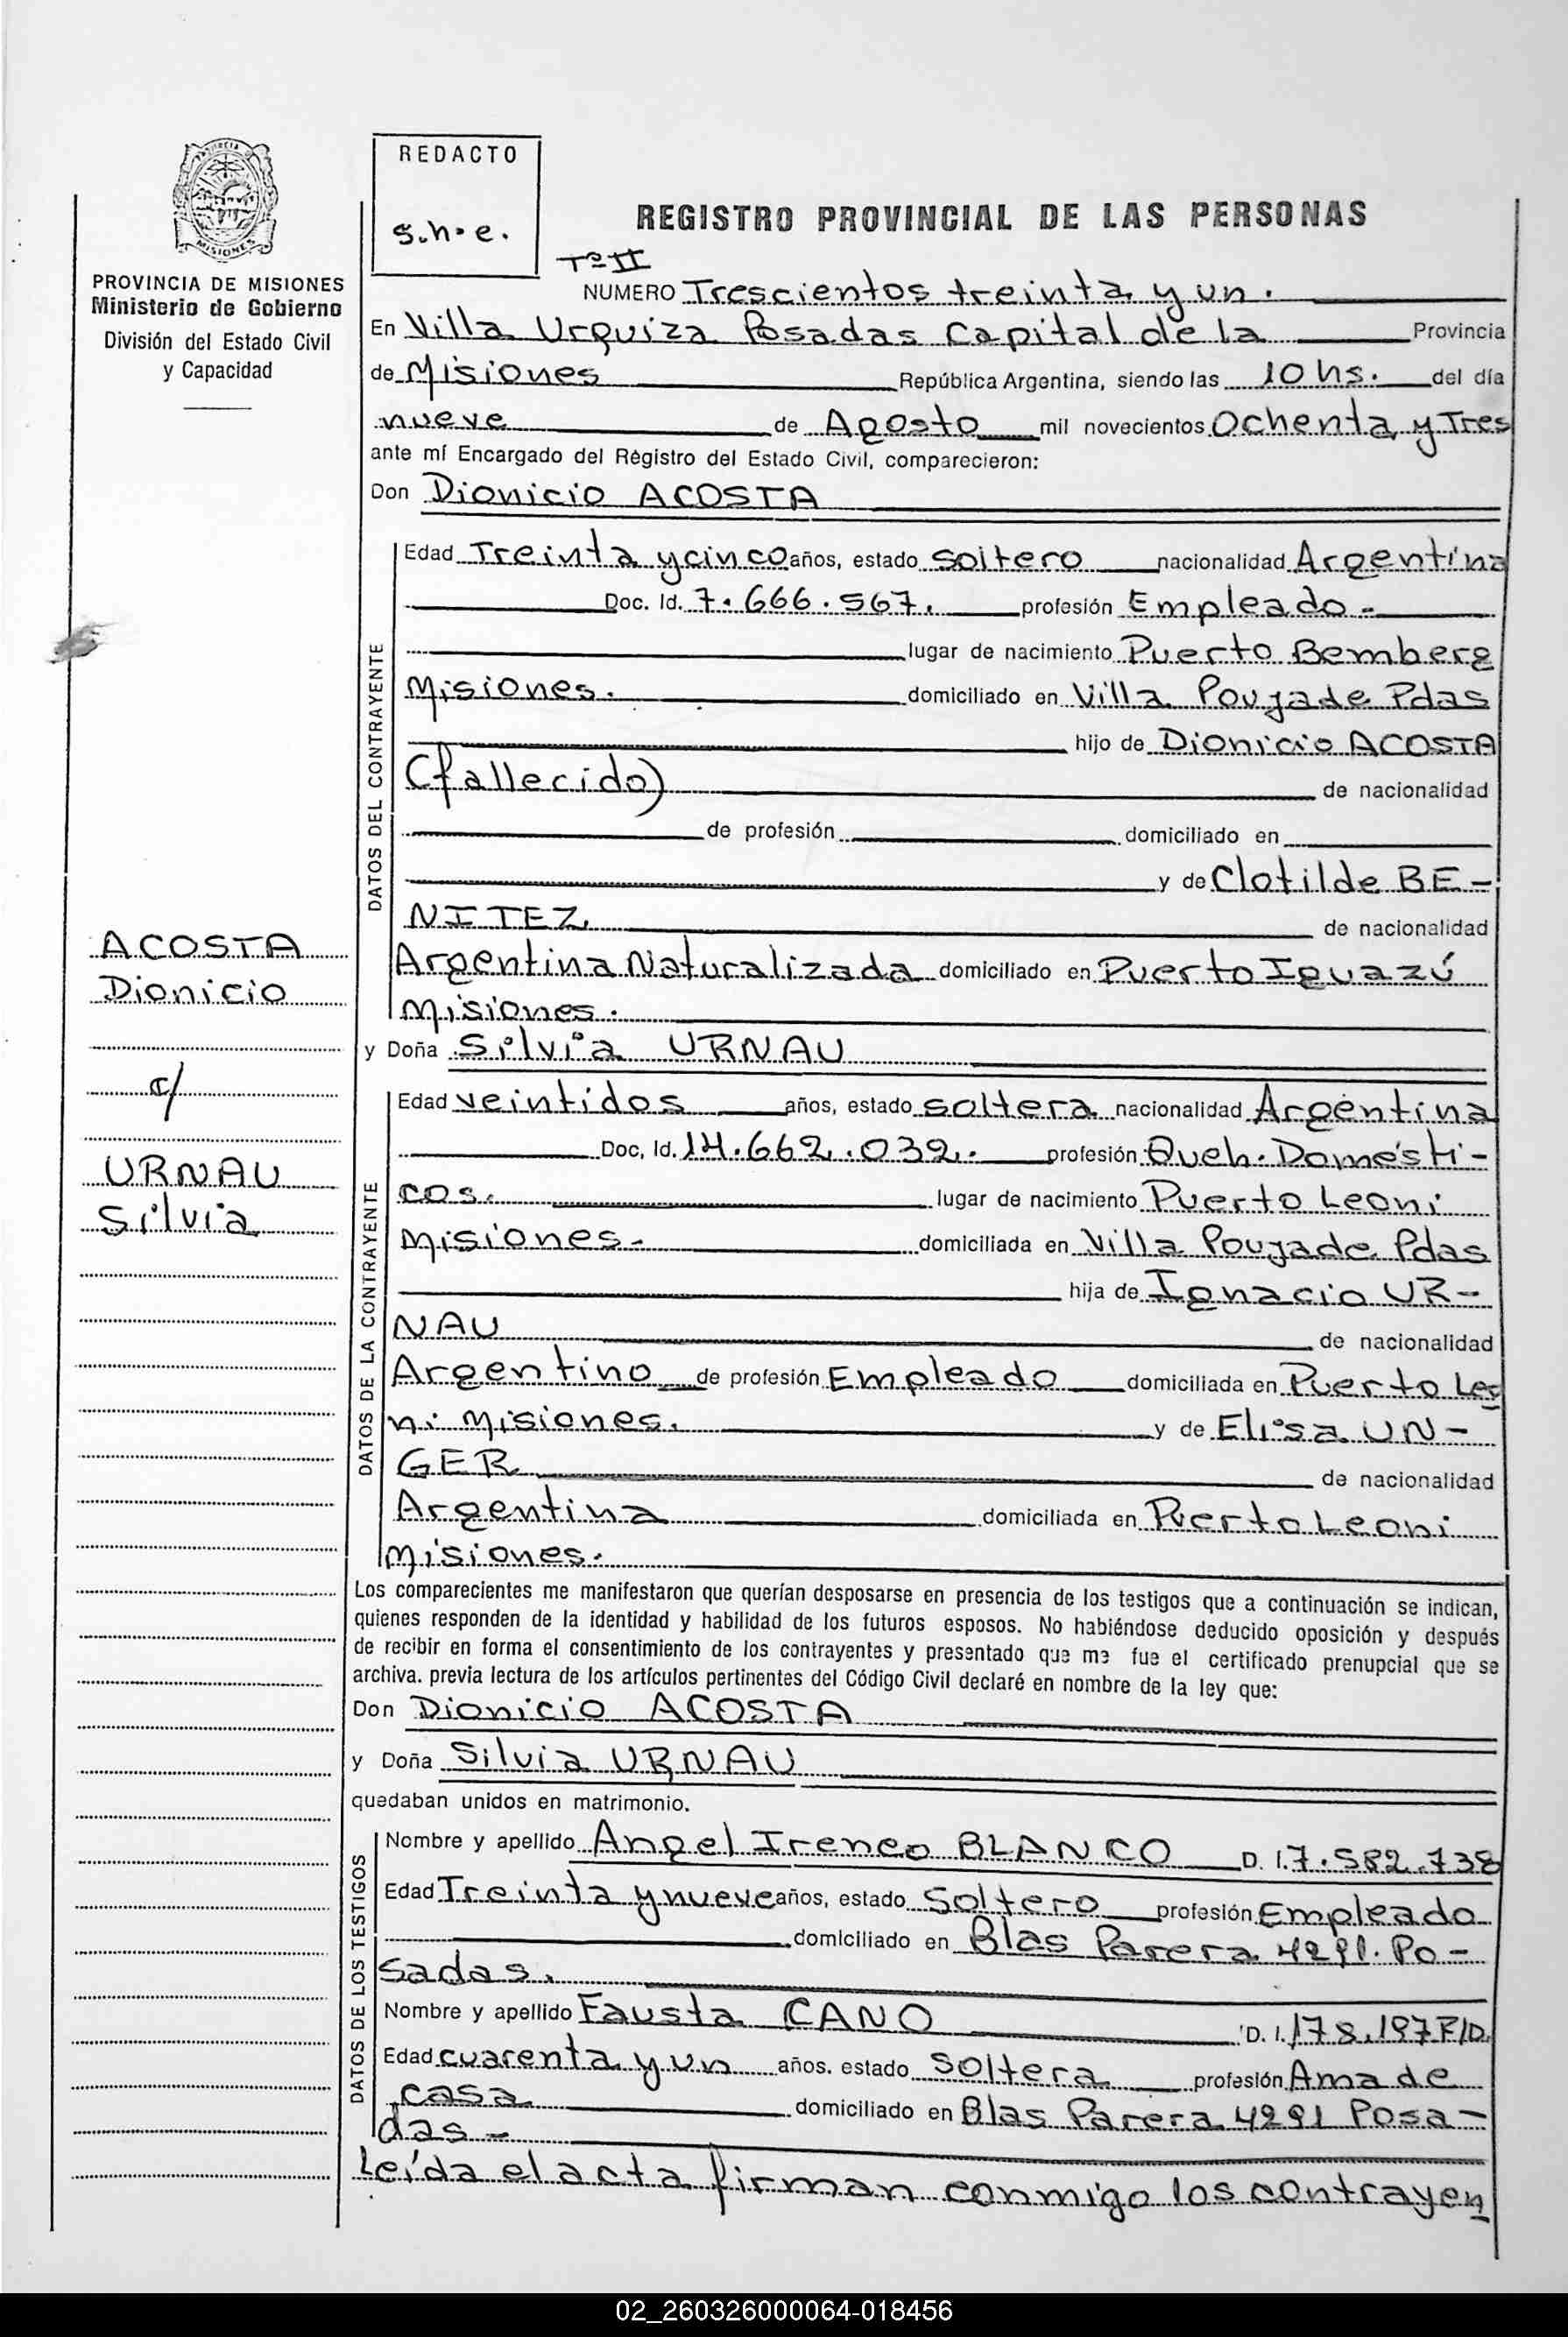 REDACTO
s.h.e.
PROVINCIA DE MISIONES
Ministerio de Gobierno
División del Estado Civil
y Capacidad
REGISTRO PROVINCIAL DE LAS PERSONAS
Tº II
NUMERO Trescientos treinta y un.
En Villa Urquiza Posadas Capital de la Provincia
de Misiones República Argentina, siendo las 10 hs. del día
nueve de Agosto mil novecientos Ochenta y Tres
ante mí Encargado del Régistro del Estado Civil, comparecieron:
Don Dionicio ACOSTA
DATOS DEL CONTRAYENTE
Edad Treinta y cinco años, estado soltero nacionalidad Argentina
Doc. Id. 7.666.567. profesión Empleado-
lugar de nacimiento Puerto Bemberg
Misiones. domiciliado en Villa Poujade Pdas
hijo de Dionicio ACOSTA
(fallecido) de nacionalidad
de profesión domiciliado en
y de Clotilde BE-
NITEZ de nacionalidad
Argentina Naturalizada domiciliado en Puerto Iguazú
Misiones.
ACOSTA
Dionicio
c/
URNAU
Silvia
y Doña Silvia URNAU
DATOS DE LA CONTRAYENTE
Edad veintidos años, estado soltera nacionalidad Argentina
Doc, Id. 14.662.032. profesión Queh. Domésti-
cos. lugar de nacimiento Puerto Leoni
Misiones- domiciliada en Villa Poujade Pdas
hija de Ignacio UR-
NAU de nacionalidad
Argentino de profesión Empleado domiciliada en Puerto Leo
ni Misiones. y de Elisa UN-
GER de nacionalidad
Argentina domiciliada en Puerto Leoni
Misiones.
Los comparecientes me manifestaron que querían desposarse en presencia de los testigos que a continuación se indican,
quienes responden de la identidad y habilidad de los futuros esposos. No habiéndose deducido oposición y después
de recibir en forma el consentimiento de los contrayentes y presentado que me fue el certificado prenupcial que se
archiva. previa lectura de los artículos pertinentes del Código Civil declaré en nombre de la ley que:
Don Dionicio ACOSTA
y Doña Silvia URNAU
quedaban unidos en matrimonio.
DATOS DE LOS TESTIGOS
Nombre y apellido Angel Ireneo BLANCO D. I. 7.582.738
Edad Treinta y nueve años, estado Soltero profesión Empleado
domiciliado en Blas Parera 4291. Po-
sadas.
Nombre y apellido Fausta CANO D. I. 178.197 F/D.
Edad cuarenta y un años. estado Soltera profesión Ama de
casa domiciliado en Blas Parera 4291 Posa-
das-
Leída el acta firman conmigo los contrayen
02_260326000064-018456